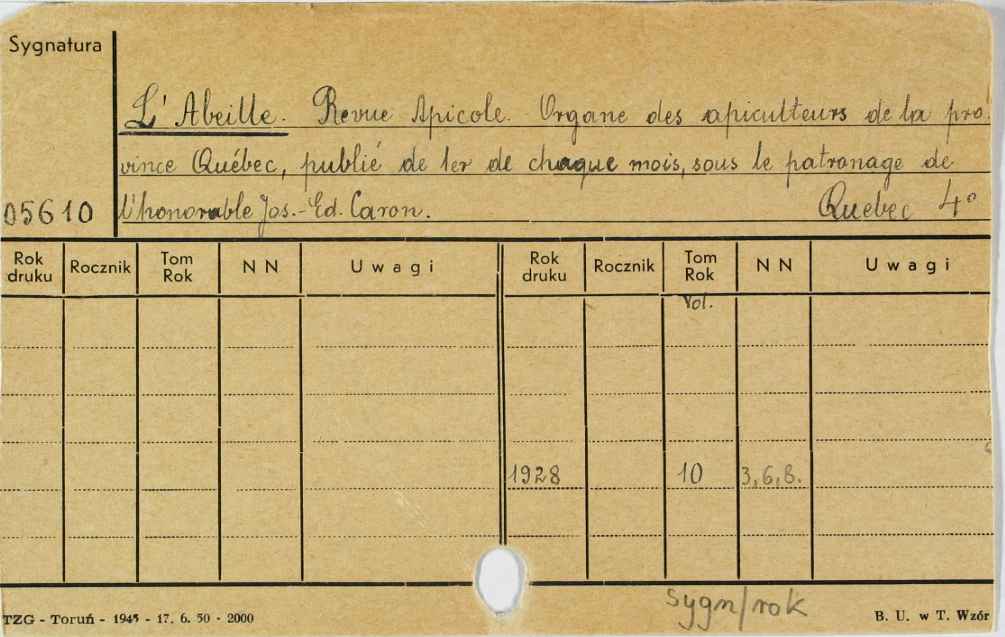 Sygnatura
L'Abeille. Revue Apicole. Organe des apiculteurs de la pro
vince Québec, publié de 1er de chaque mois, sous le patronage de
05610 l'honorable Jos.-Ed. Caron. Quebec 4°
Rok druku Rocznik Tom Rok N N Uwagi Rok druku Rocznik Tom Rok N N Uwagi
Vol.
1928 10 3,6,8.
sygn/rok
TZG - Toruń - 1945 - 17. 6. 50 - 2000 B. U. w T. Wzór